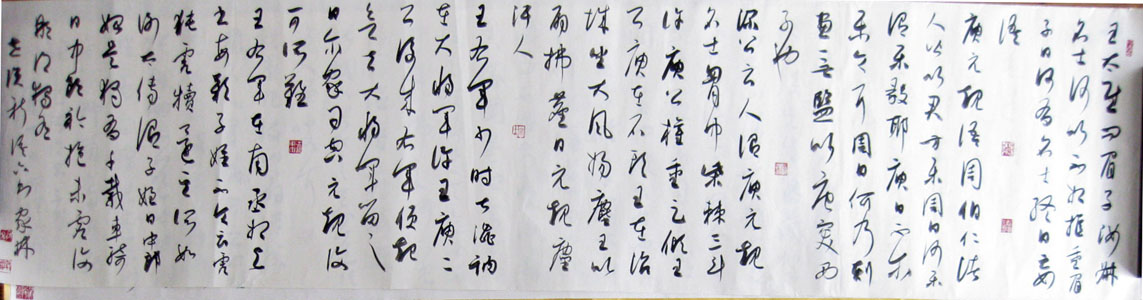 王太尉問眉子汝叔
名士何以不相推重眉
子曰何有名士終日妄
語
庾元規語周伯仁諸
人皆以君方樂周曰何樂
謂樂毅耶庾曰不爾
樂令耳周曰何乃刻
畫無鹽以唐突西
子也
深公云人謂庾元規
名士胸中柴棘三斗
許庾公權重足傾王
公庾在石頭王在冶
城坐大風揚塵王以
扇拂塵曰元規塵
汙人
王右軍少時甚澀訥
在大將軍許王庾二
公後來右軍便起
欲去大將軍留之
曰爾家司空元規復
可所難
王右軍在南丞相与
書每歎子姪不令云虎
㹠虎犢還其所如
謝太傅謂子姪曰中郎
始是獨有千載車騎
曰中郎衿抱未虛復
那得獨有
世説新語六則